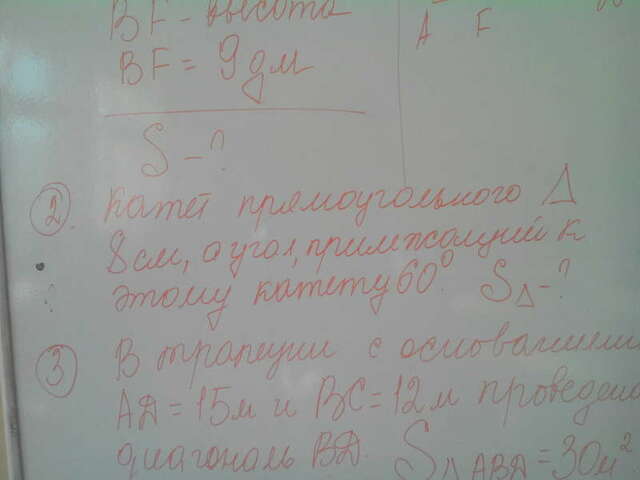 BF - высота
A F
BF = 9 дм
S - ?
2. Катет прямоугольного Δ
8 см, а угол, прилежащий к
этому катету 60°. SΔ - ?
3 В трапеции с основаниями
АД = 15 м и ВС = 12 м проведена
диагональ ВД. SΔ АВД = 30 м²